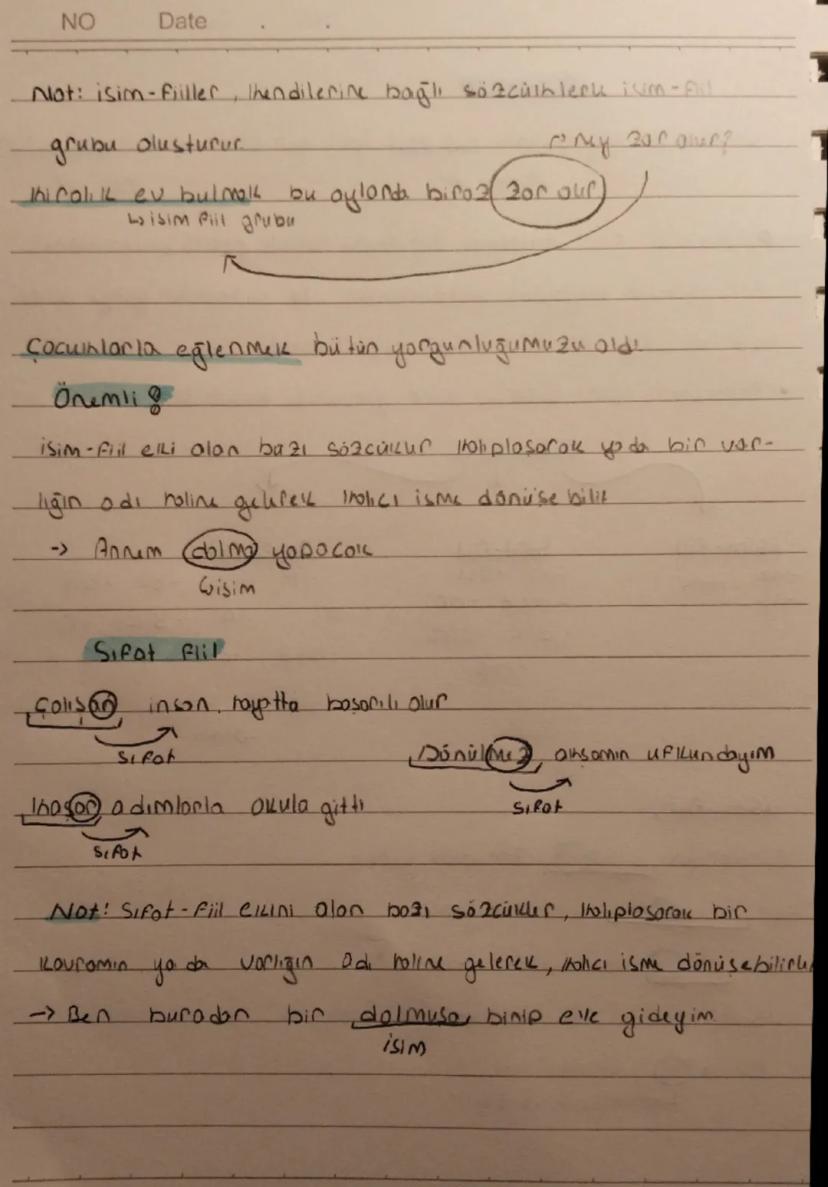 NO Date . .
Not: isim-fiiller, kendilerine bağlı sözcüklerle isim-fiil
grubu oluşturur.
→ ney zor olur?
Kiralık ev bulmak bu aylarda biraz zor olur
↳ isim fiil grubu
Çocuklarla eğlenmek bütün yorgunluğumuzu aldı.
Önemli !
isim-fiil eki alan bazı sözcükler kalıplaşarak yada bir var-
lığın adı haline gelerek kalıcı isme dönüşebilir
-> Annem dolma yapacak
↳ isim
Sıfat fiil
Çalışan insan, hayatta başarılı olur
sıfat
Dönülmez akşamın ufkundayım
sıfat
koşar adımlarla okula gitti
sıfat
Not! Sıfat-fiil ekini alan bazı sözcükler, kalıplaşarak bir
kavramın ya da varlığın adı haline gelerek, kalıcı isme dönüşebilirler
-> Ben buradan bir dolmuşa binip eve gideyim
isim